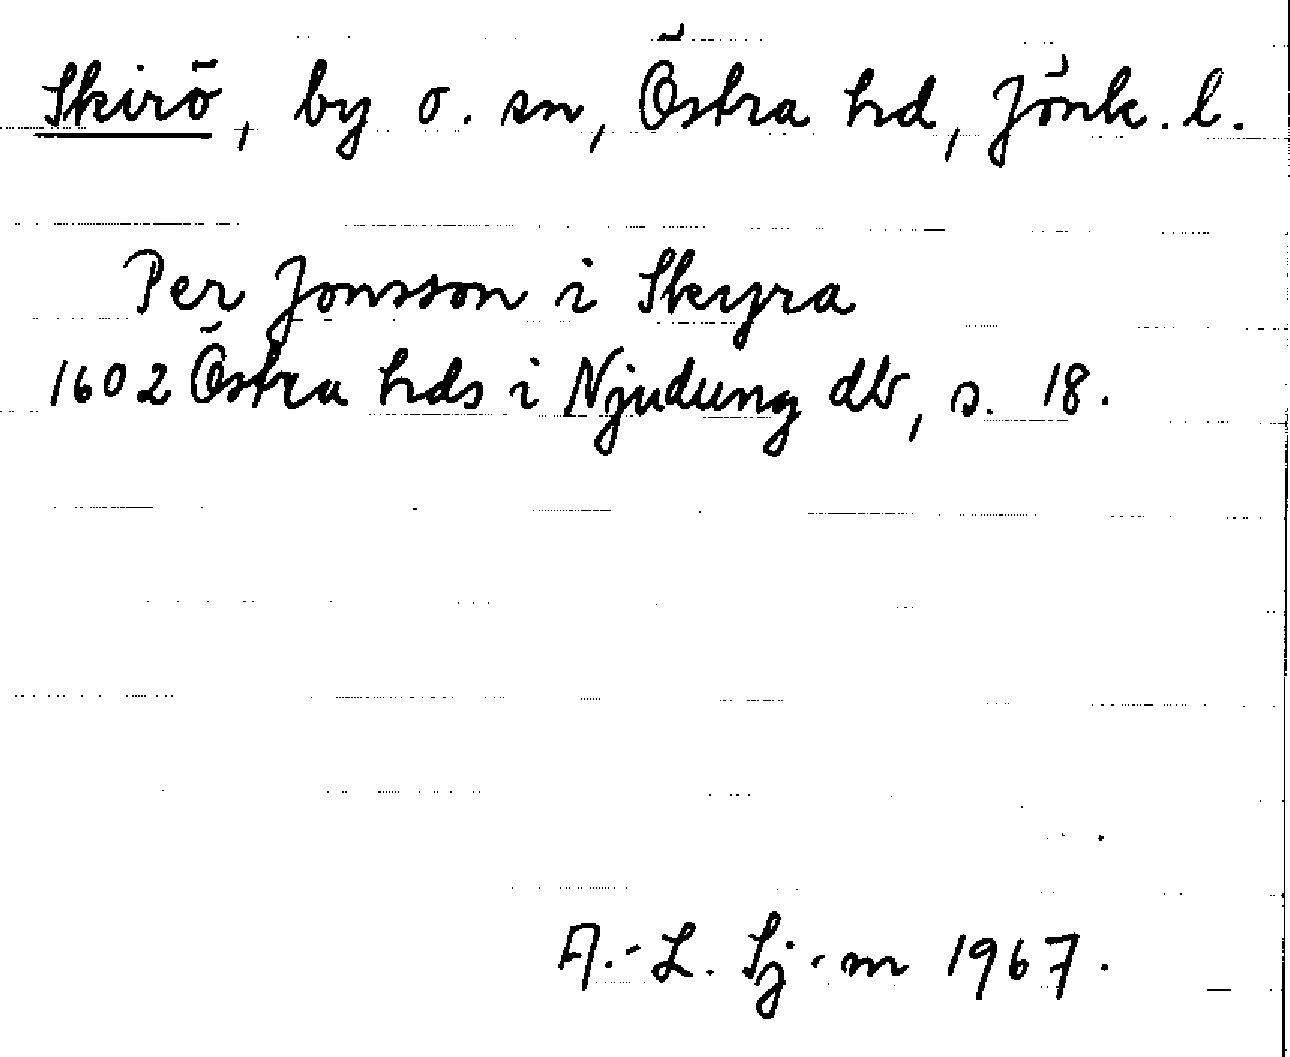 Skirö, by o. sn, Östra hd, Jönk. l.
Per Jonsson i Skyra
1602 Östra hds i Njudung db, s. 18.
A.-L. Sj-m 1967.